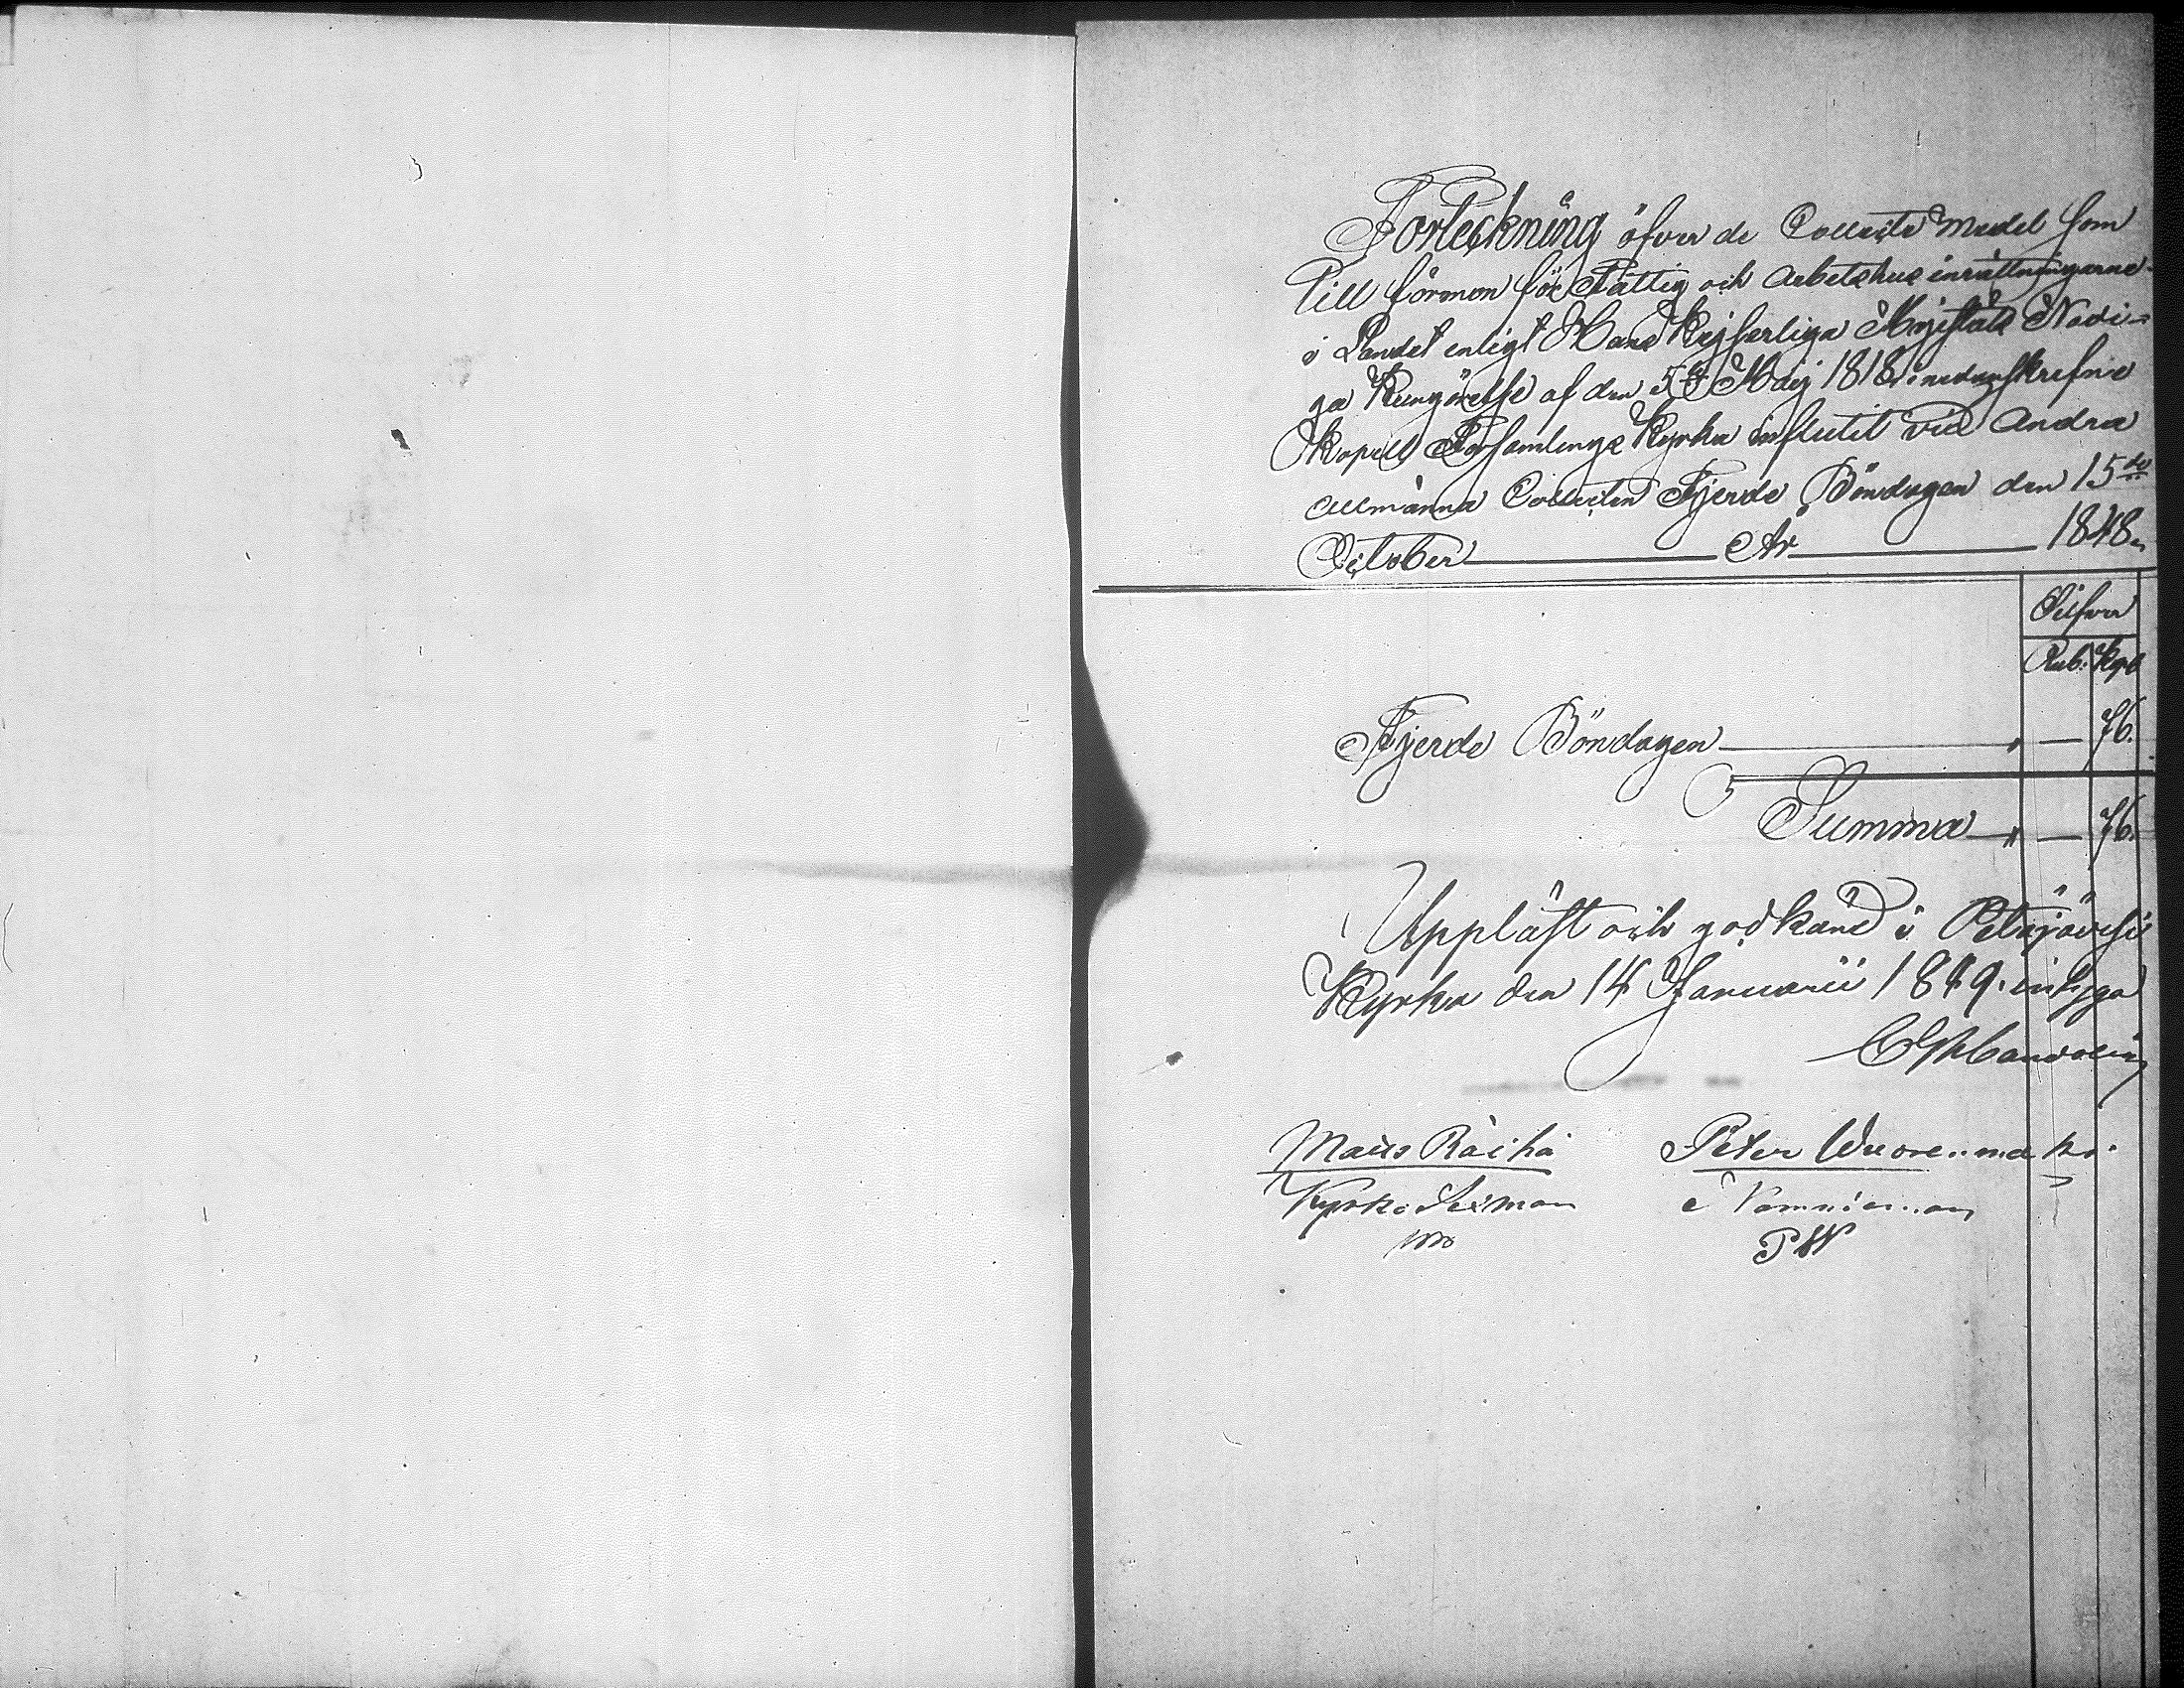 Förteckning öfver de Collecte medel som
Till förmon för Fattig och Arbetshus inrättningarne
i Landet enligt Hans Kejserliga Majestäts Nådi-
ga Kungörelse af den 5te Maij 1818. i nedanskrefne
Kapell Församlings Kyrka influtit vid Andra
allmänna Collecten Fjerde Böndagen den 15de
October År 1848.
Silfver
Rub. Kop
Fjerde Böndagen " — 76.
Summa " — 76.
Uppläst och godkänd i Petäjävesi
Kyrka den 14 Januarii 1849. intyga
Mats Räihä Peter Wuorenmäki
Kyrko Sexman Nämndeman
PW